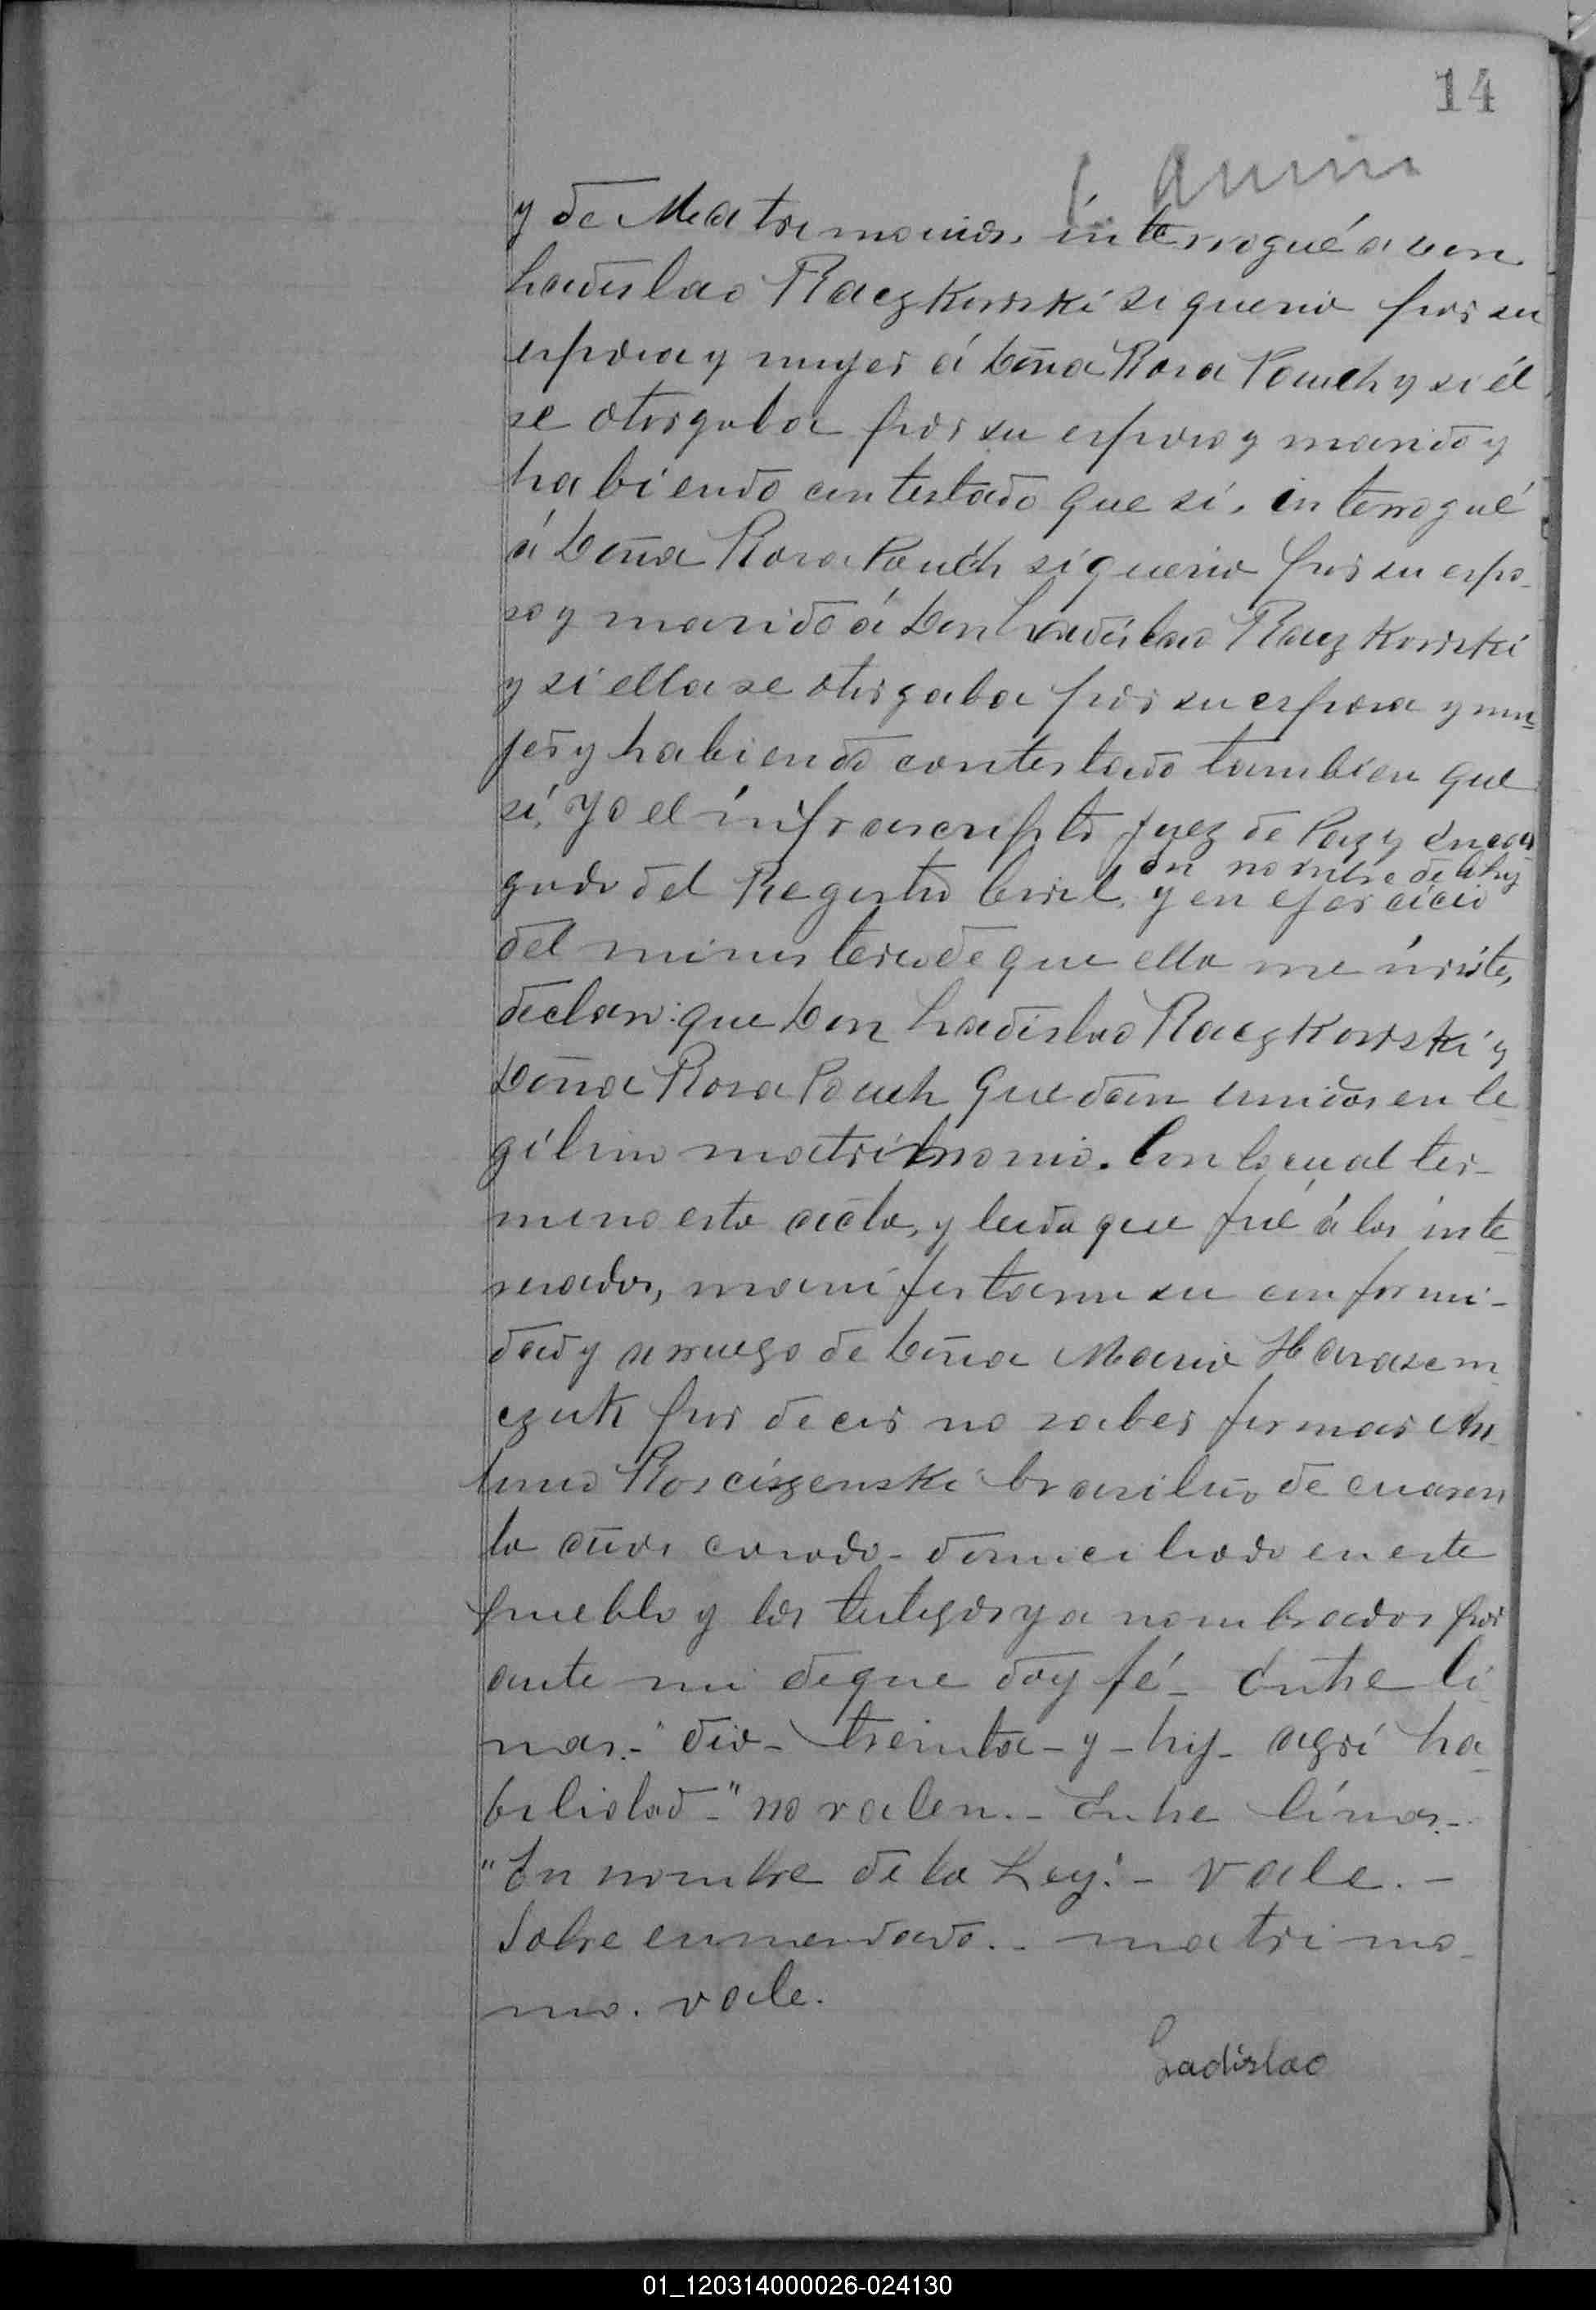 14
y de Matrimonios, interrogué a Don
Ladislao Raczkowski si queria por su
esposa y mujer á Doña Rosa Pauch y si él
se otorgaba por su esposo y marido y
habiendo contestado que sí, interrogué
á Doña Rosa Pauch si queria por su espo-
so y marido á Don Ladislao Raczkowski
y si ella se otorgaba por su esposa y mu-
jer y habiendo contestado tambien que
sí, Yo el infrascripto Juez de Paz y Encar
en nombre de la ley
gado del Registro Civil, y en ejercicio
del ministerio de que ella me inviste,
declaro: que Don Ladislao Raczkowski y
Doña Rosa Pauch quedan unidos en le-
gítimo matrimonio. Con lo cual ter-
mino esta acta, y leida que fué á los inte-
resados, manifestaron su conformi-
dad y a ruego de Doña Maria Harasem
czuk por decir no saber firmar An
tonio Rosciszenski brasilero de cuaren
ta años casado - domiciliado en este
pueblo y los testigos ya nombrados por
ante mi de que doy fé - Entre lí
neas.- "dio - treinta - y - hij - agri ha-
bilidad -" no valen.- Entre líneas.-
"En nombre de la Ley".- vale.-
Sobre enmendado.- matrimo-
nio. vale.
Ladislao
01_120314000026-024130